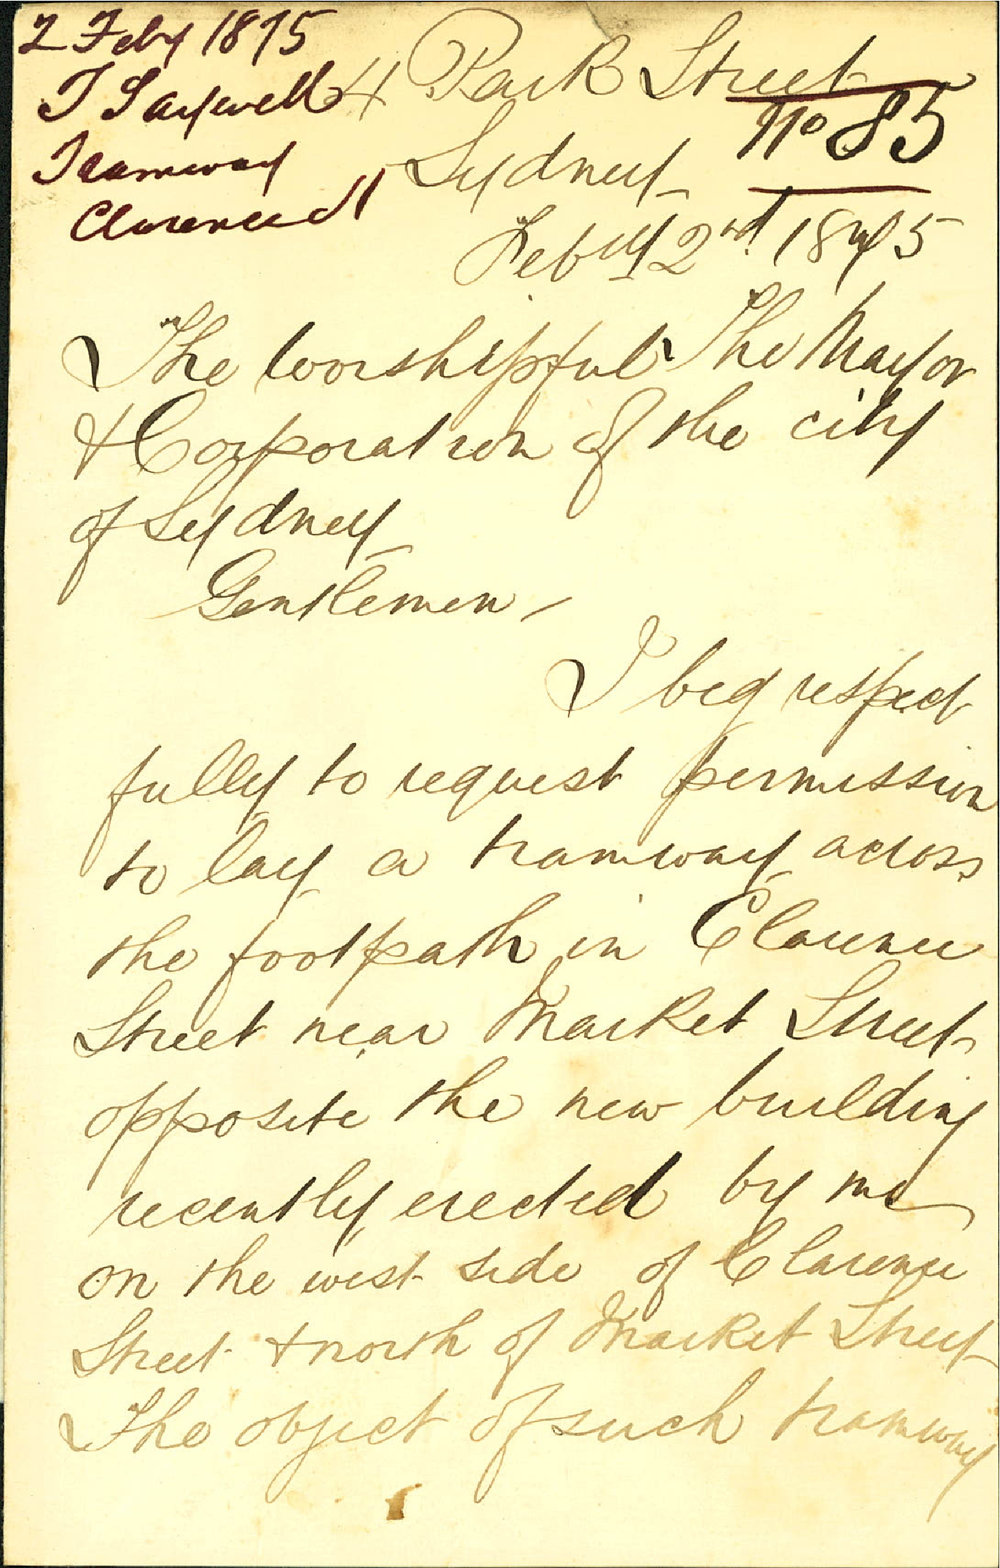 2 Feby 1875
T Saywell
Tramway
Clarence St
4 Park Street
No 85
Sydney
Feby 2nd 1875
The Worshipful The Mayor
& Corporation of the city
of Sydney
Gentlemen,
I beg respect
fully to request permission
to lay a tramway across
the footpath in Clarence
Street near Market Street
opposite the new building
recently erected by me
on the west side of Clarence
Street & north of Market Street
The object of such tramway